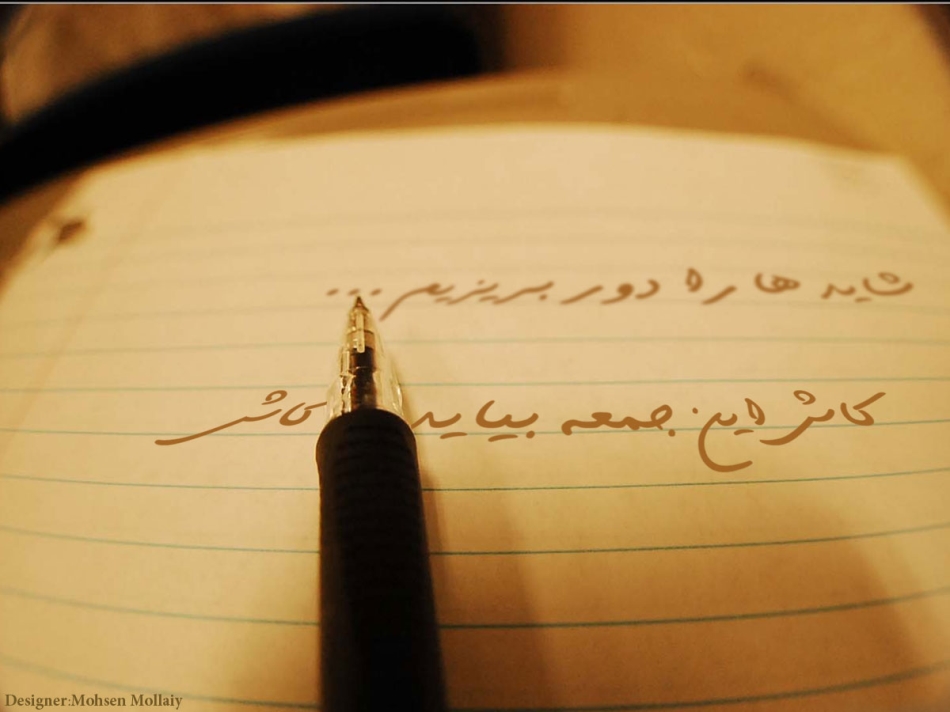 شاید ها را دور بریزیم...
کاش این جمعه بیاید کاش
Designer:Mohsen Mollaiy